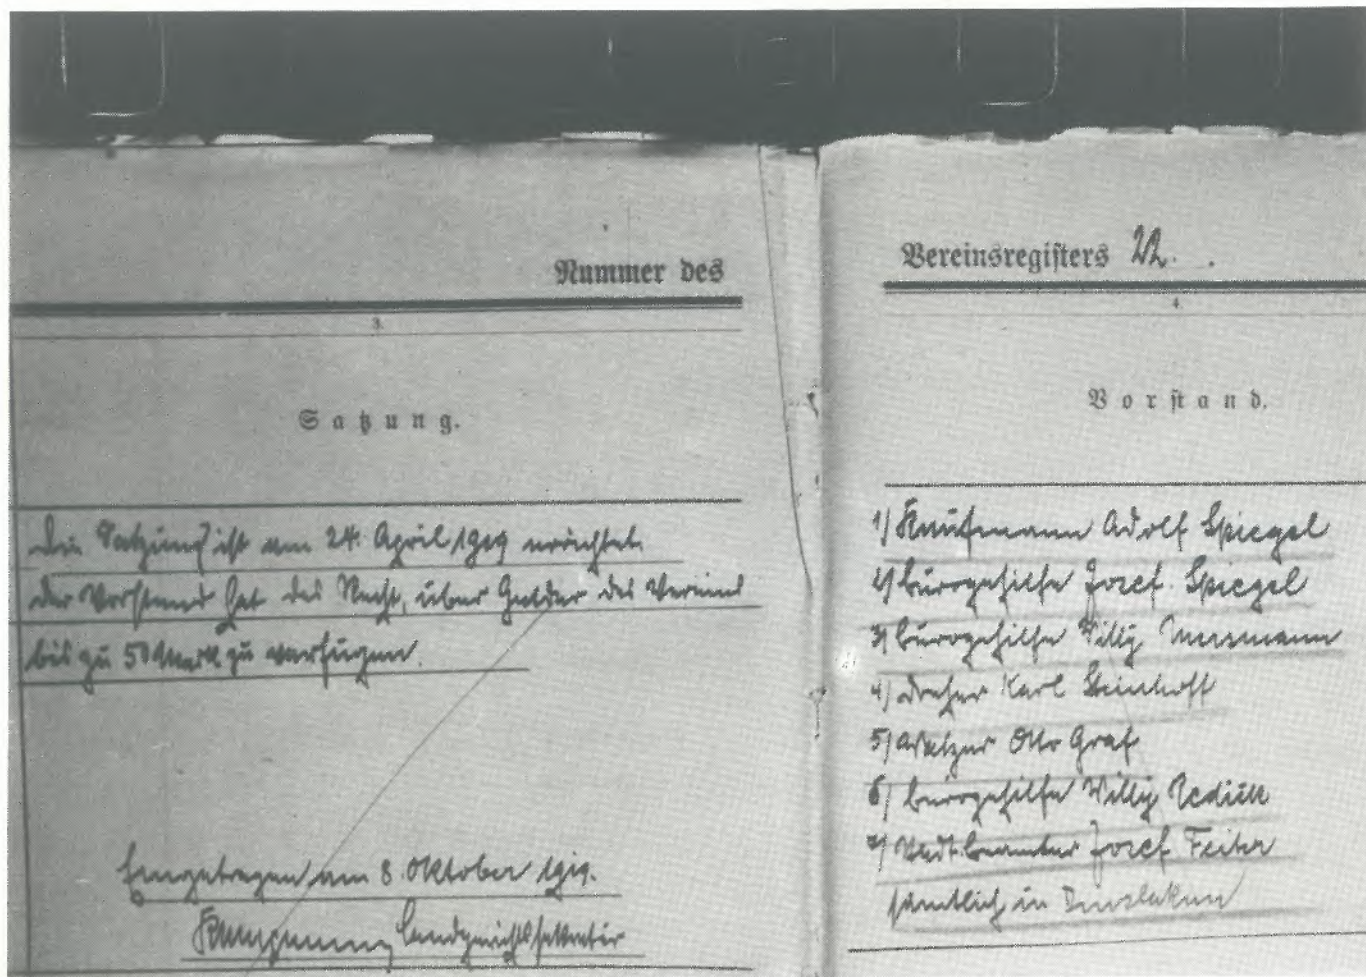 Nummer des
3.
Satzung.
Die Satzung ist am 24. April 1919 errichtet.
Der Vorstand hat das Recht, über Gelder des Vereins
bis zu 50 Mark zu verfügen.
Eingetragen am 8. Oktober 1919.
Landgerichtssekretär
Vereinsregisters 22.
4.
Vorstand.
1) Kaufmann Adolf Spiegel
2) Bürogehilfe Josef Spiegel
3) Bürogehilfe Willy Mersmann
4) Dreher Karl Steinhoff
5) Walzer Otto Graf
6) Bürogehilfe Willy
7) Stadtbeamter Josef Feiter
sämtlich in Dinslaken